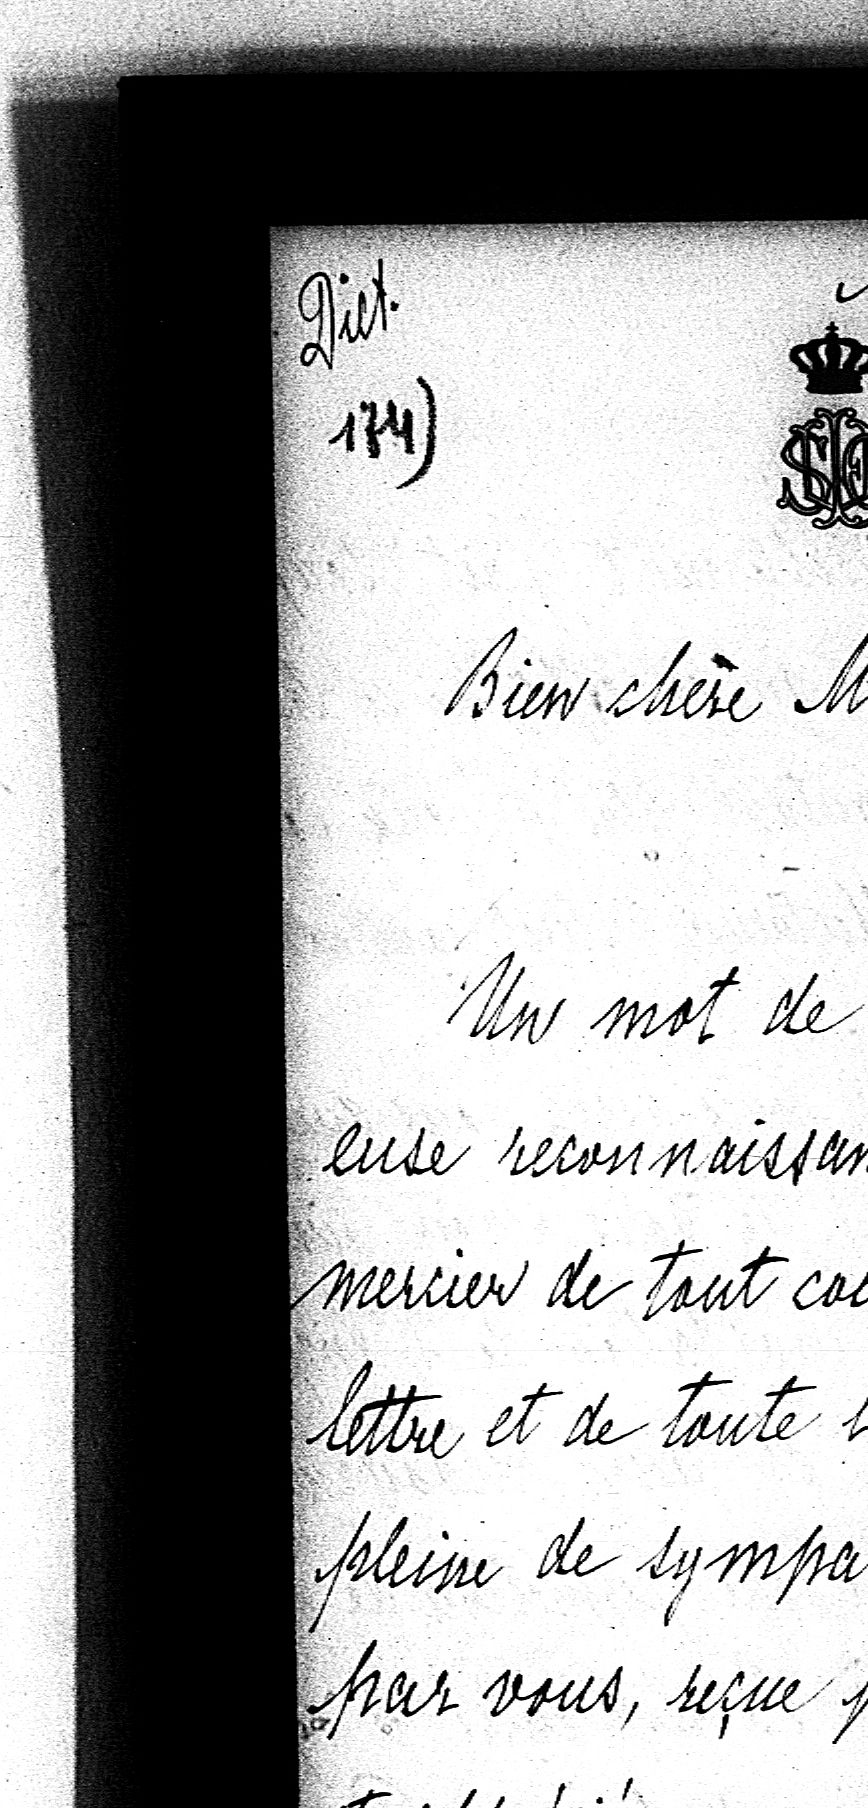 Dict.
174)
Bien chère
Un mot de
euse reconnaissan
mercier de tout coe
lettre et de toute
pleine de sympa
par vous, reçue